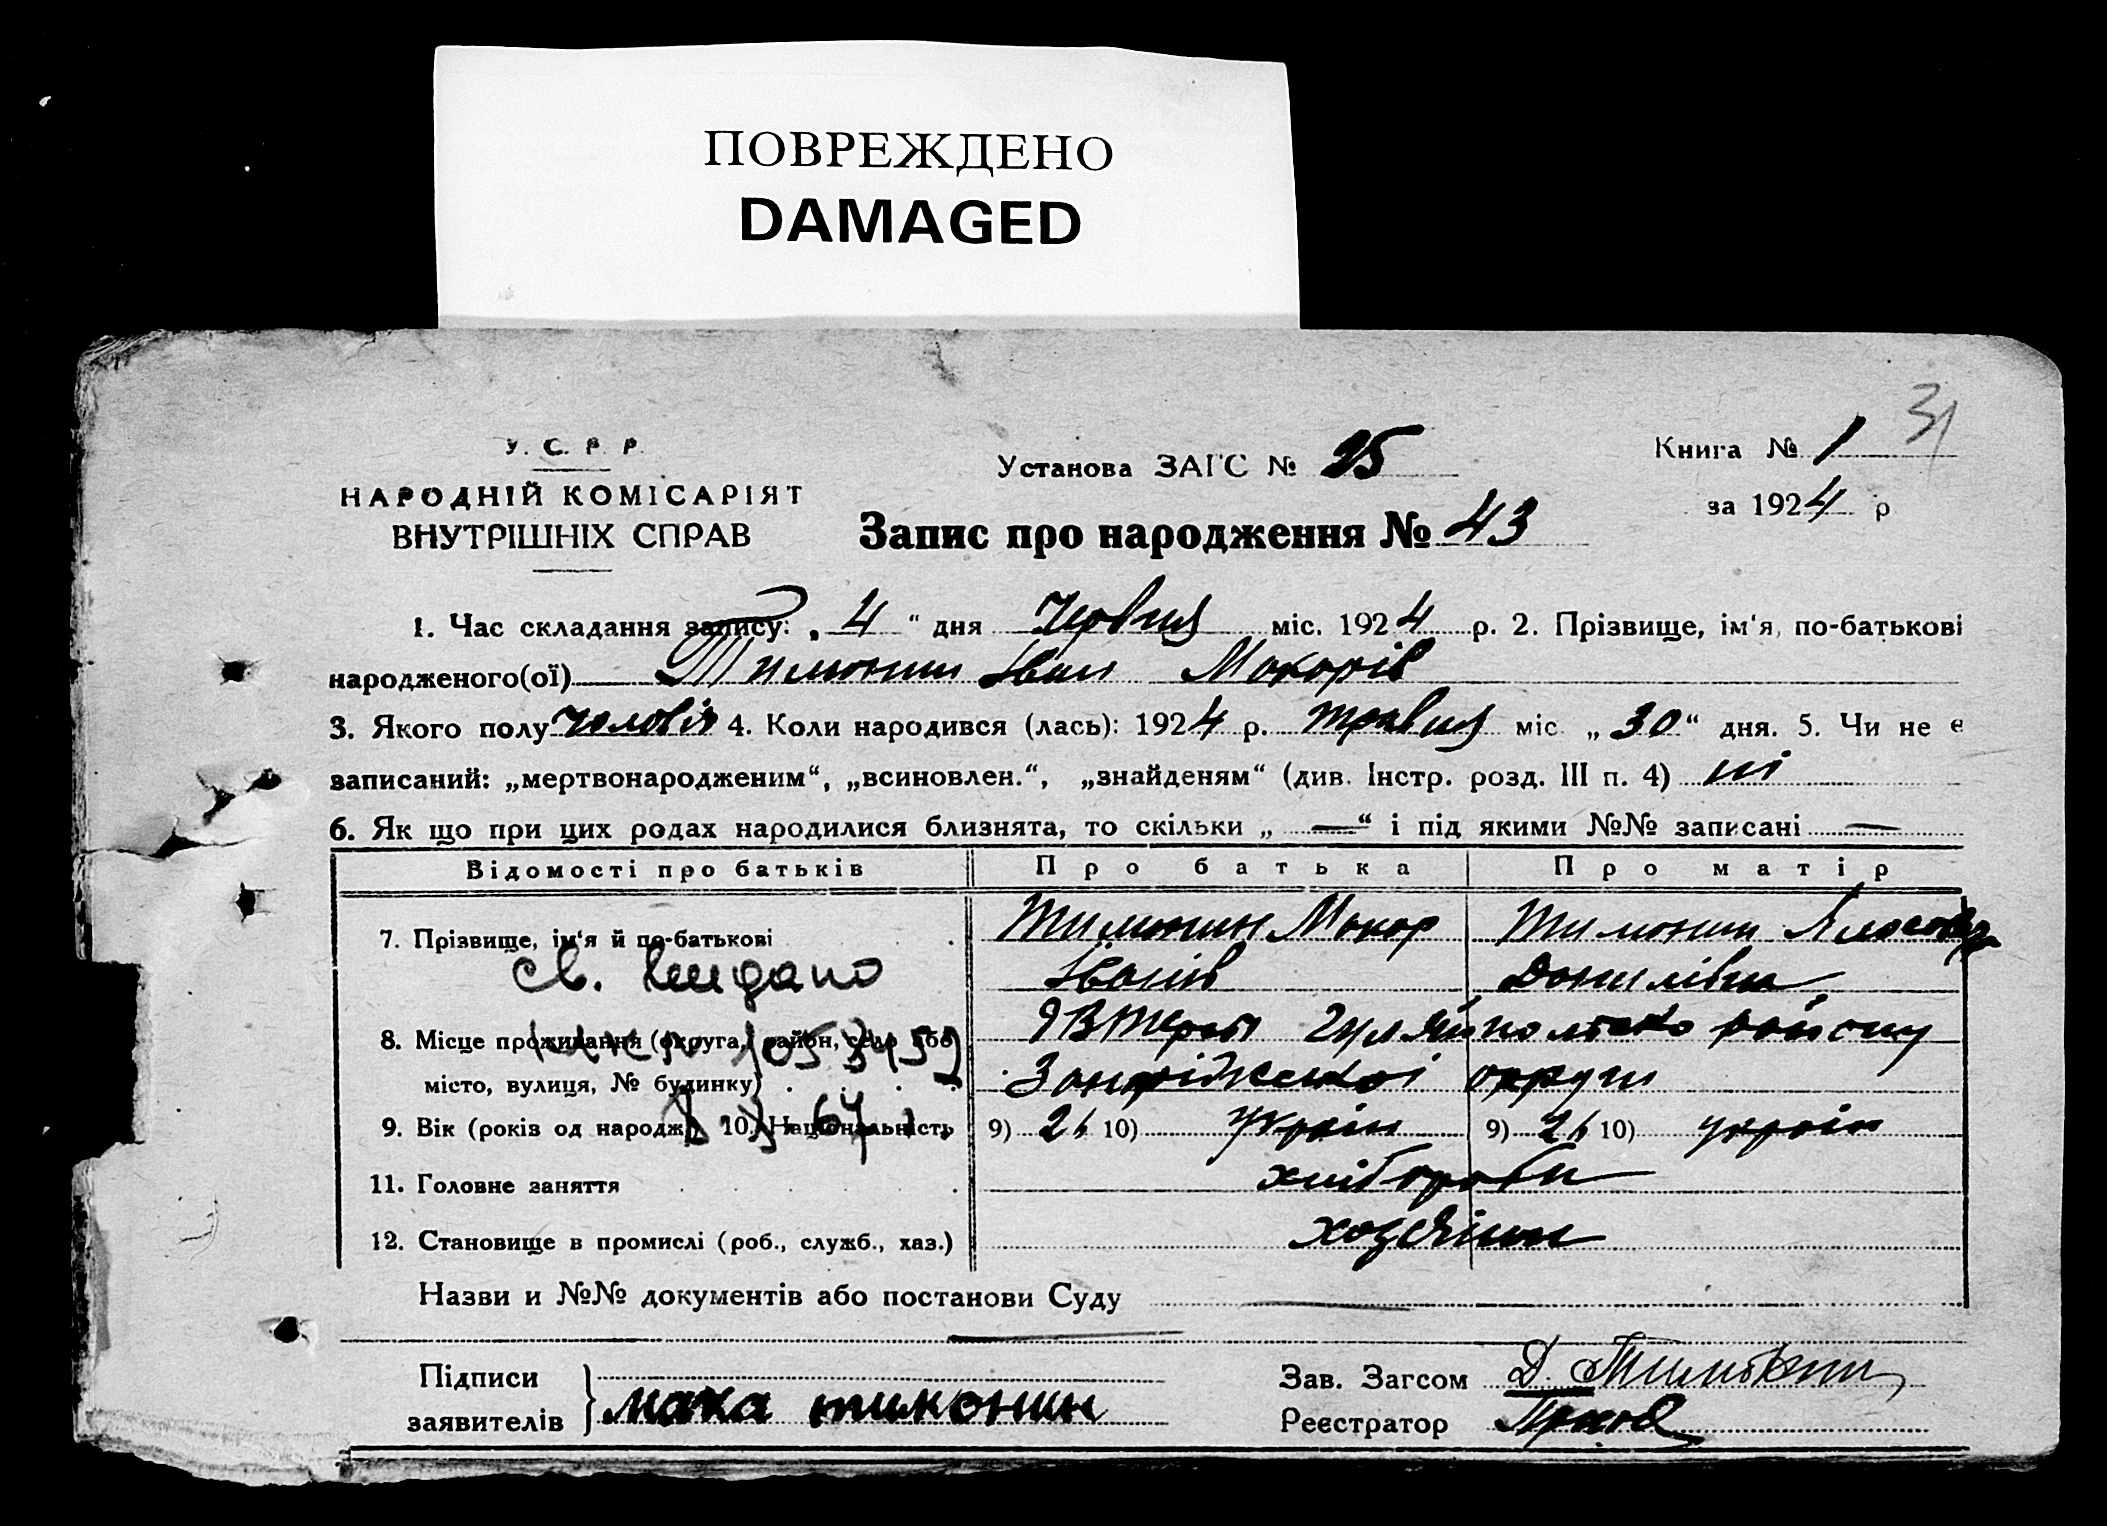 ПОВРЕЖДЕНО
DAMAGED
31
У. С. Р. Р.
НАРОДНІЙ КОМІСАРІЯТ
ВНУТРІШНІХ СПРАВ
Установа ЗАГС № 25
Книга № 1
за 1924 р
Запис про народження № 43
1. Час складання запису: „ 4 “ дня Червня міс. 1924 р. 2. Прізвище, ім'я, по-батькові
народженого(ої) Тимонин Іван Макарів
3. Якого полу чоловіч 4. Коли народився (лась): 1924 р. травня міс. „ 30 “ дня. 5. Чи не є
записаний: „мертвонародженим“, „всиновлен.“, „знайденям“ (див. Інстр. розд. III п. 4) ні
6. Як що при цих родах народилися близнята, то скільки „ — “ і під якими №№ записані —
Відомості про батьків Про батька Про матір
7. Прізвище, ім'я й по-батькові Тимонин Макар Тимонин
Іванів Данилівна
св. видано
8. Місце проживання (округа, район, село або Гуляйпольсько району
місто, вулиця, № будинку) Запоріжської округи
9. Вік (років од народж.) 10. Національність 9) 26 10) Україн 9) 26 10) україн
11. Головне заняття хлібороби
12. Становище в промислі (роб., служб., хаз.)
Назви и №№ документів або постанови Суду
Підписи
заявителів мака тимонин
Зав. Загсом Д.
Реєстратор